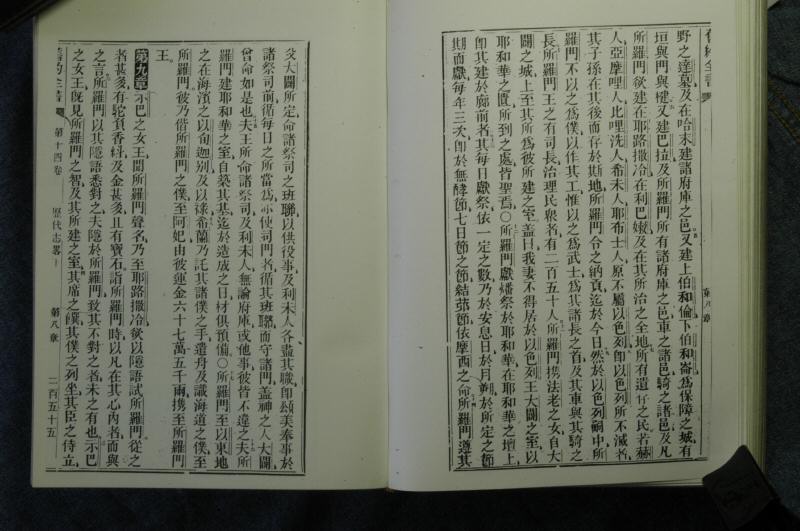 舊約全書
第八章
野之達莫及在哈末建諸府庫之邑又建上伯和倫下伯和崙爲保障之城有
垣與門與楗又建巴拉及所羅門所有諸府庫之邑車之諸邑騎之諸邑及凡
所羅門欲建在耶路撒冷在利巴嫩及在其所治之全地所有遺存之民若赫
人亞摩哩人比哩洗人希未人耶布士人原不屬以色列卽以色列所不滅者
其子孫在其後而存於斯地所羅門令之納貢迄於今日然於以色列嗣中所
羅門不以之爲僕以作其工惟以之爲武士爲其諸長之首及其車與其騎之
長所羅門王之有司長治理民衆者有二百五十人所羅門携法老之女自大
闢之城上至其所爲彼所建之室蓋曰我妻不得居於以色列王大闢之室以
耶和華之匱所到之處皆聖焉○所羅門獻燔祭於耶和華在耶和華之壇上
卽其建於廊前者其每日獻祭依一定之數乃於安息日於月朔於所定之節
期而獻每年三次卽於無酵節七日節之節結茆節依摩西之命所羅門遵其
父大闢所定命諸祭司之班聯以供役事及利未人各盡其職卽頌美奉事於
諸祭司前循每日之所當爲亦使司門者循其班聯而守諸門蓋神之人大闢
曾命如是也夫王所命諸祭司及利未人無論府庫或他事彼皆不違之夫所
羅門建耶和華之室自築其基迄於造成之日材俱預備○所羅門至以東地
之在海濱之以旬迦別及以祿希蘭乃託其諸僕之手遣舟及識海道之僕至
所羅門彼乃偕所羅門之僕至阿妃由彼運金六十七萬五千兩携至所羅門
王
第九章示巴之女王聞所羅門聲名乃至耶路撒冷欲以隱語試所羅門從之
者甚多有駝負香料及金甚多且有寶石詣所羅門時以凡在其心內者而與
之言所羅門以其隱語悉對之夫隱於所羅門致其不對之者未之有也示巴
之女王旣見所羅門之智及其所建之室其席之饌其僕之列坐其臣之侍立
舊約全書 第十四卷 歷代志畧下 第八章 二百五十五